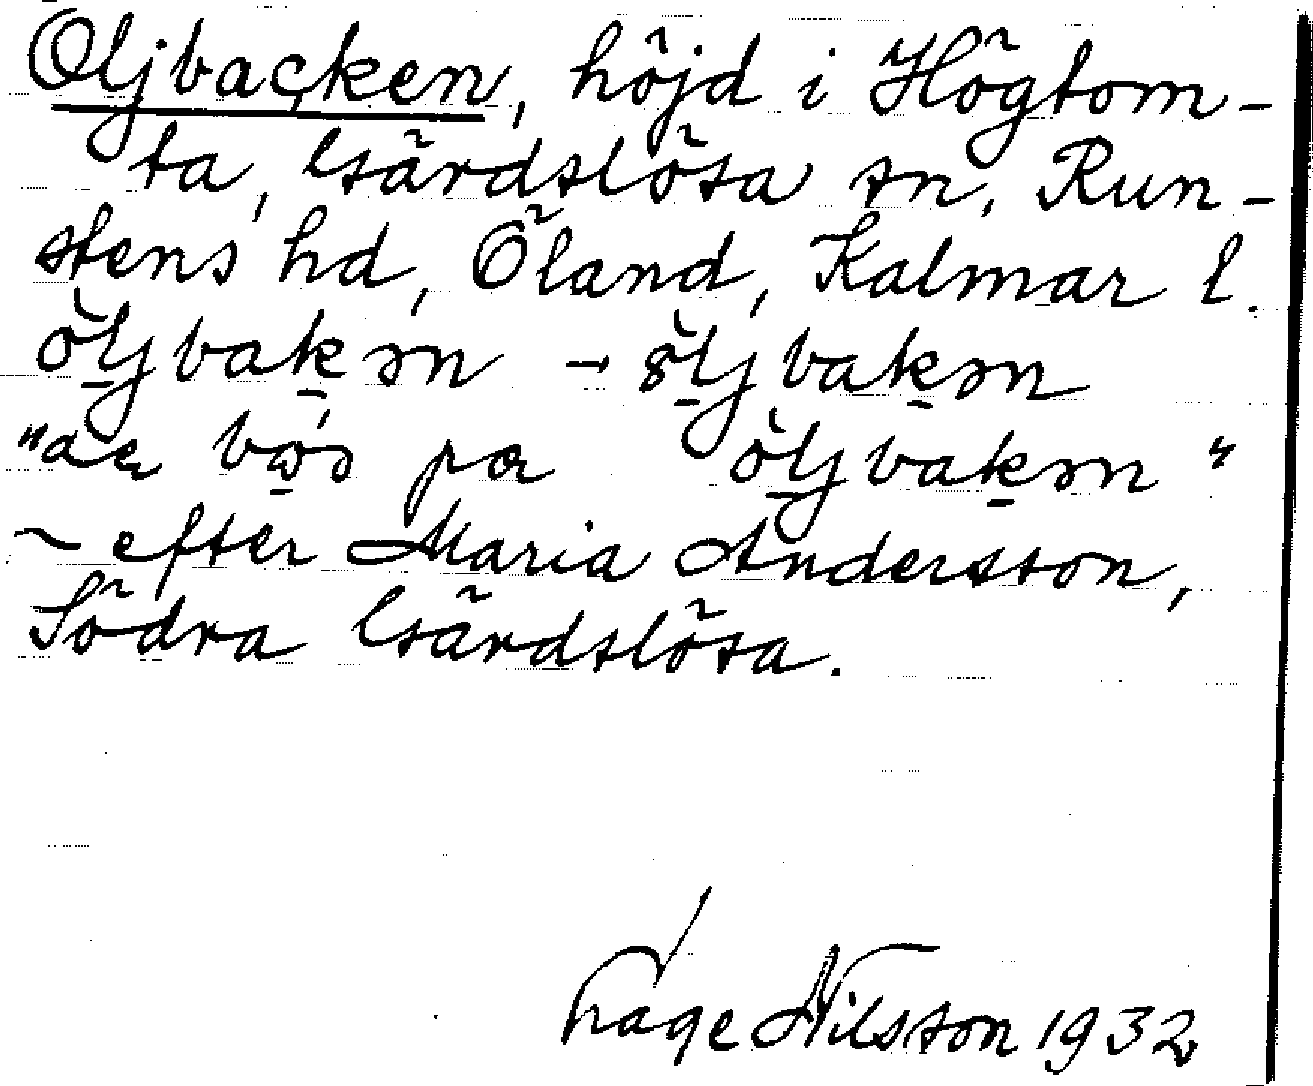 Öljbacken, höjd i Högtom-
ta, Gärdslösa sn, Run-
stens hd, Öland, Kalmar l.
öljbakən – öljbakən
"
efter Maria Andersson,
Södra Gärdslösa.
Tage Nilsson 1932